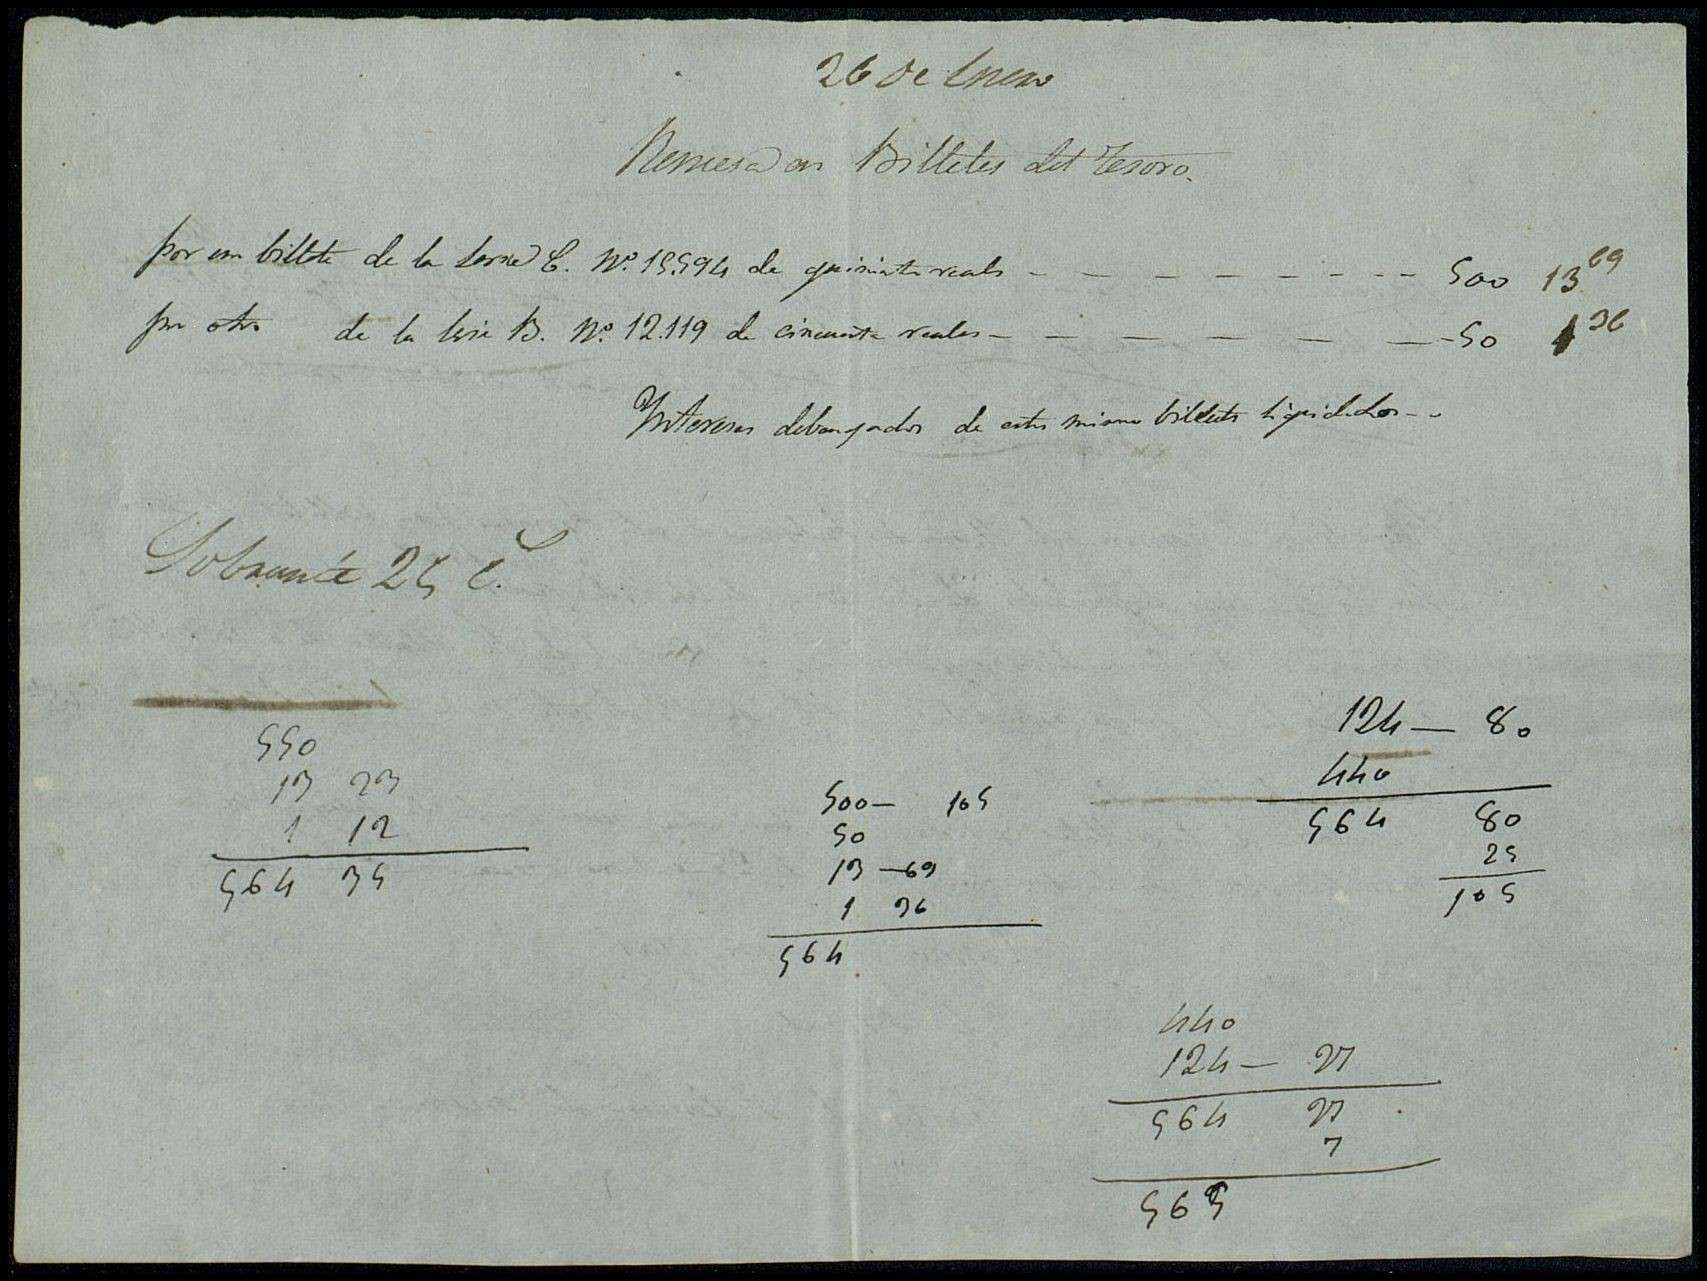 26 de Enero
Remesa en Billetes del Tesoro.
por un billete de la serie C. Nº. 15.594 de quinientos reales - - - - - - - - - 500 13 69
por otro de la serie B. Nº. 12.119 de cincuenta reales - - - - - - - 50 1 36
Yntereses debengados de estos mismos billetes liquidados - -
Sobrante 25 C.
550
13 23
1 12
564 35
500 - 105
50
13 - 69
1 36
564
124 - 80
440
564 80
25
105
440
124 - 27
564 27
7
565